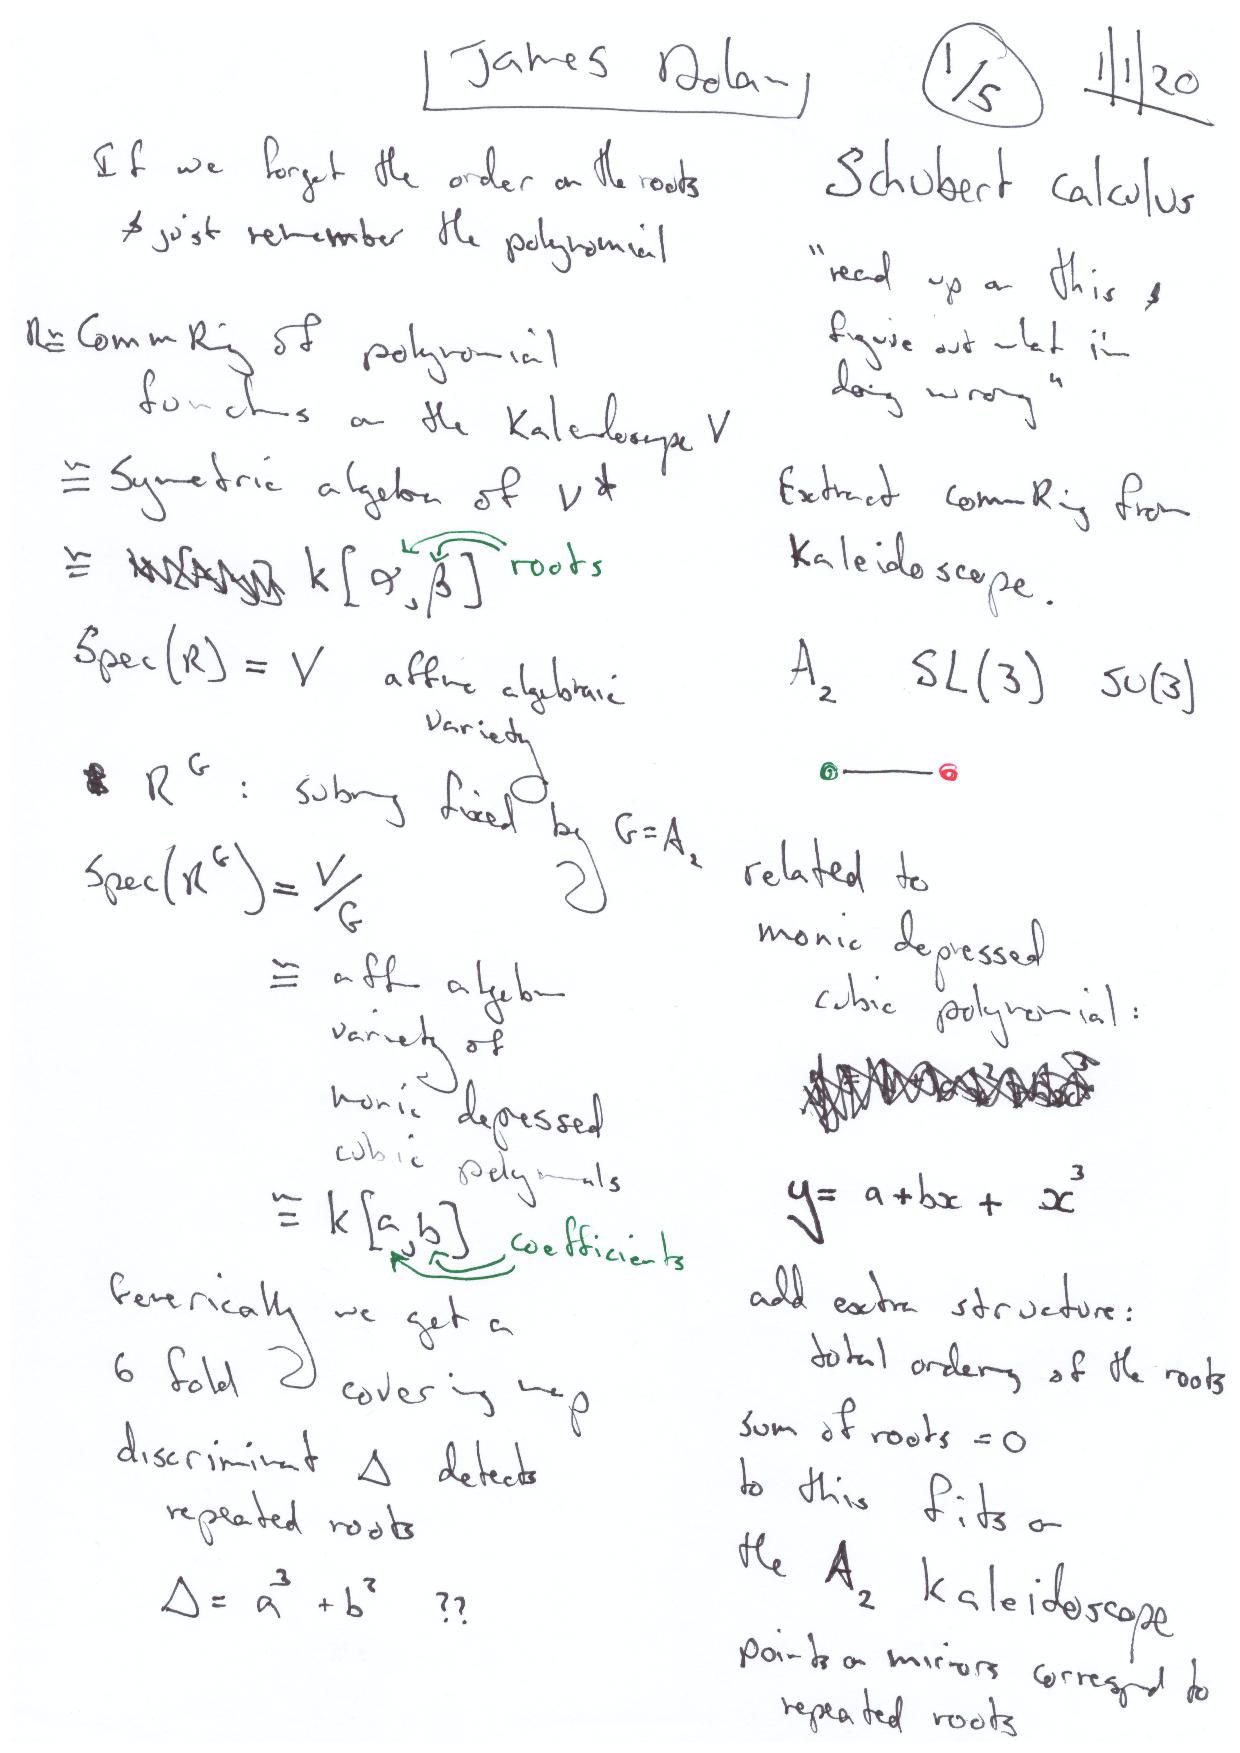 James Dolan
1/5
1/1/20
If we forget the order on the roots
& just remember the polynomial
R ≅ CommRing of polynomial
functions on the Kaleidoscope V
≅ Symetric algebra of V*
≅ k[α, β] roots
Spec(R) = V affine algebraic
variety
R^G : subring fixed by G = A₂
Spec(R^G) = V/G
≅ aff algebra
variety of
monic depressed
cubic polynomials
≅ k[a, b] coefficients
Generically we get a
6 fold covering map
discriminant Δ detects
repeated roots
Δ = a³ + b² ??
Schubert calculus
"read up on this &
figure out what im
doing wrong"
Extract CommRing from
Kaleidoscope.
A₂ SL(3) SU(3)
related to
monic depressed
cubic polynomial:
y = a + bx + x³
add extra structure:
total ordering of the roots
sum of roots = 0
to this fits on
the A₂ kaleidoscope
points on mirrors correspond to
repeated roots